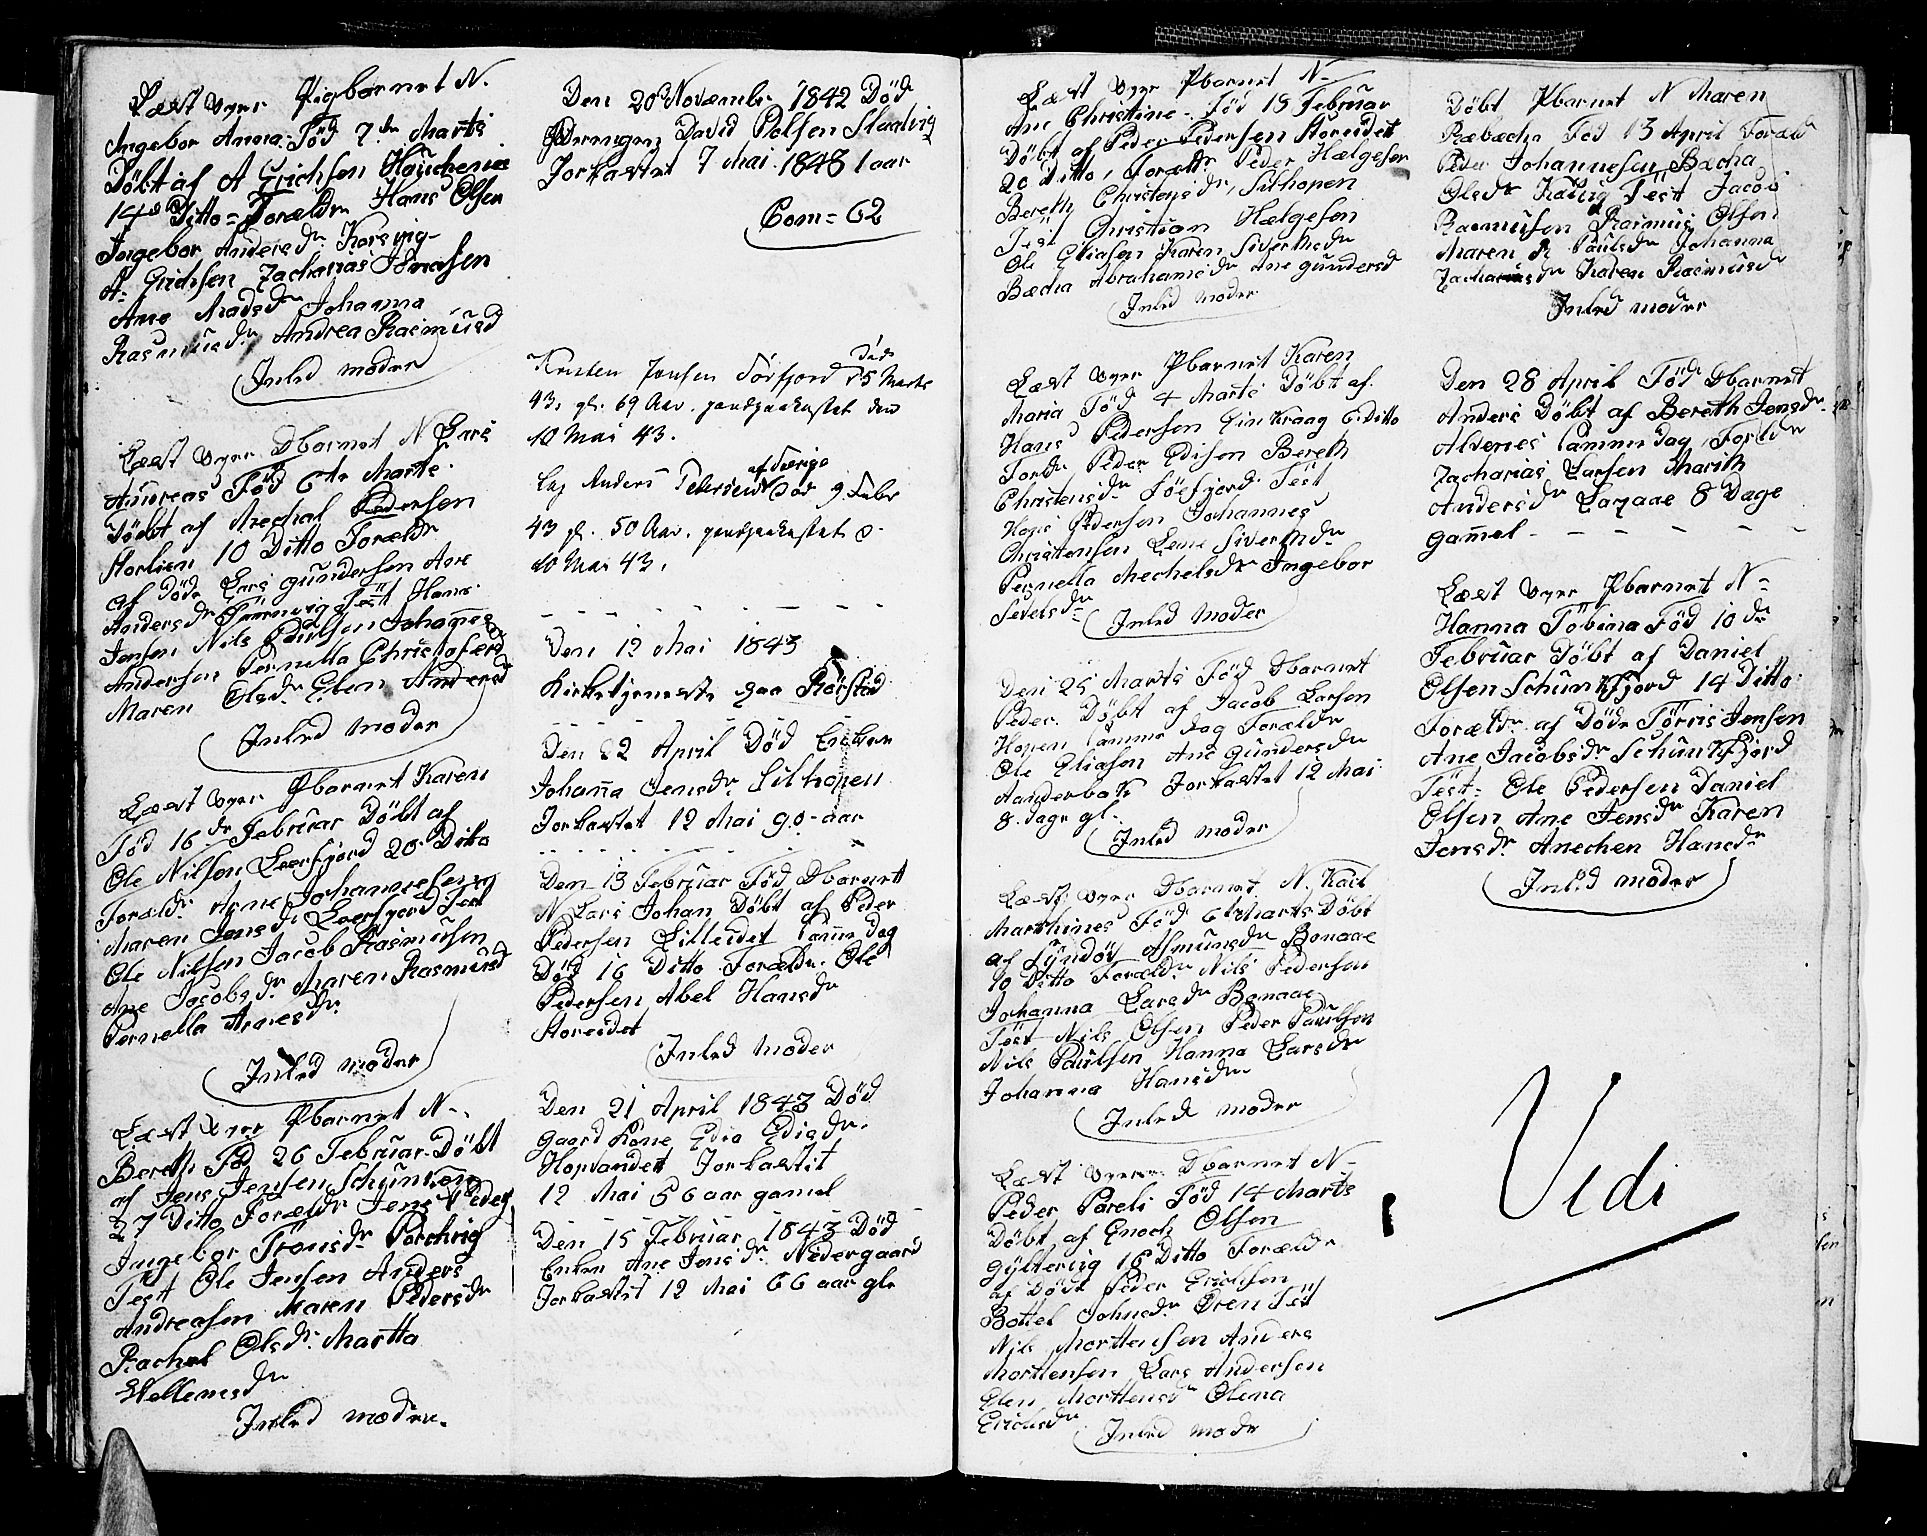 Læst over Pigbarnet N.
Ingebor Anna Föd 7de Marts
Döbt af A Erichsen
14d Ditto = Forældr Hans Olsen
Ingebor Andersdr Korsvig
A= Erichsen Zacharias Jonasen
Ane Madsdr Johanna
Rasmusdr Andrea Rasmusd
Inled moder
Læst over Dbarnet N Lars
Andreas Föd 6te Marts
Döbt af Mechal Pedersen
Storlien 10 Ditto Forældr
af Döde Lars gundersen Ane
Andersdr Test Hans
Jensen Nils Paulsen Johanes
Andersen Pernella Christofersd
Maren Olsdr Elen Andersd
Inled moder
Læst over Pbarnet Karen
Föd 16de Februar Döbt af
Ole Nilsen Leerfjord 20 Ditto
Forældr Arne Johannesen
Maren Jensdr Leerfjord Test
Ole Nilsen Jacob Rasmusen
Ane Jacobsdr Maren Rasmusd
Pernella Arnesdr
Inled moder
Læst over Pbarnet N-
Bereth Föd 26 Februar Döbt
af Jens Jensen
27 Ditto Forældr Jens Peders
Ingebor Tronsdr
Test Ole Jensen Anders
Andreasen Maren Pedersdr
Rachel Olsdr Martta
Wellumsdr
Inled moder.
Den 20 Novembr 1842 Död
David Polsen
Jorkastet 7 Mai 1843 1 aar
Com = 62
Kristen Jensen Sörfjord död 15 Marts
43, gl. 69 Aar. paakastet den
10 Mai 43.
Lap Anders Petersen af Sverige död 9 Febr
43 gl. 50 Aar. paakastet d
10 Mai 43.
Den 12 Mai 1843
Kirketjeneste paa Rörstad
Den 22 April Död Enken
Johanna Jensdr Silhopen
Jorkastet 12 Mai 90 - aar
Den 13 Februar Föd Dbarnet
N Lars Johan Döbt af Peder
Pedersen Lilleidet samme Dag
Död 16 Ditto Forældr Ole
Pedersen Abel Hansdr
Storeidet
Inled Moder
Den 21 April 1843 Död
gaard Kone Edia Edisdr
Hopvandet Jorkastet
12 Mai 56 aar gamel
Den 15 Februar 1843 Död
Enken Ane Jensdr Nedergaard
Jorkastet 12 Mai 66 aar gl
Læst over Pbarnet N-
Ane Christine Föd 15 Februar
Döbt af Peder Pedersen Storeidet
20 Ditto, Forældr Peder Hælgesen
Bereth Christensdr, Silhopen
Test Christian Hælgesen
Ole Eliasen Karen Siverthsdr
Bæcha Abrahamsdr Ane gundersd
Inled moder
Læst over Pbarnet Karen
Maria Föd 4 Marts Döbt af
Hans Pedersen 6 Ditto
Forldr Peder Edisen Bereth
Christensdr Test
Hans Pedersen Johannes
Christensen Lene Siverthsdr
Pernella Mechelsdr Ingebor
Inled Moder
Den 25 Marts Föd Dbarnet
Peder Döbt af Jacob Larsen
Hopen samme dag Forældr
Ole Eliasen Ane Gundersdr
Aanderbak Jorkastet 12 Mai
8. dage gl.
Inled moder
Læst over Dbarnet N. Karl
Marthines Föd 6te Marts Döbt
af Asmunsdr Bonaae
10 Ditto Forældr Nils Pedersen
Johanna Larsdr Bonaae
Test Nils Olsen Peder Paulsen
Nils Paulsen Hanna Larsdr
Johanna Hansdr
Inled moder
Læst over Dbarnet N-
Peder Pareli Föd 14 Marts
Döbt af Enoch Olsen
Gyltevig 16 Ditto Forældr
af Döde Peder Erichsen
Bottel Johnsdr Test
Nils Morttensen Anders
Morttensen Lars Andersen
Elen Morttensdr Olena
Erichsdr
Inled modr
Döbt Pbarnet N Maren
Ræbacha Föd 13 April Forældr
Peder Johannesen Bæcha
Olsdr Test Jacob
Rasmusen Rasmus Olsen
Maren R Paulsdr Johanna
Zachariasdr Karen Rasmusdr
Inled moder
Den 28 April Föd Dbarnet
Anders Döbt af Bereth Jensdr
Alvenes samme Dag, Forldr
Zacharias Larsen Marith
Andersdr Laxaae 8 Dage
gammel - - - -
Læst over Pbarnet N-
Hanna Töbina Föd 10de
Februar Döbt af Daniel
Olsen Schunkfjord 14 Ditto
Forældr af Döde Törris Jensen
Ane Jacobsdr Schunkfjord
Test= Ole Pedersen Daniel
Olsen Ane Jensdr Karen
Jensdr Anechen Hansdr
Inled moder
Vidi